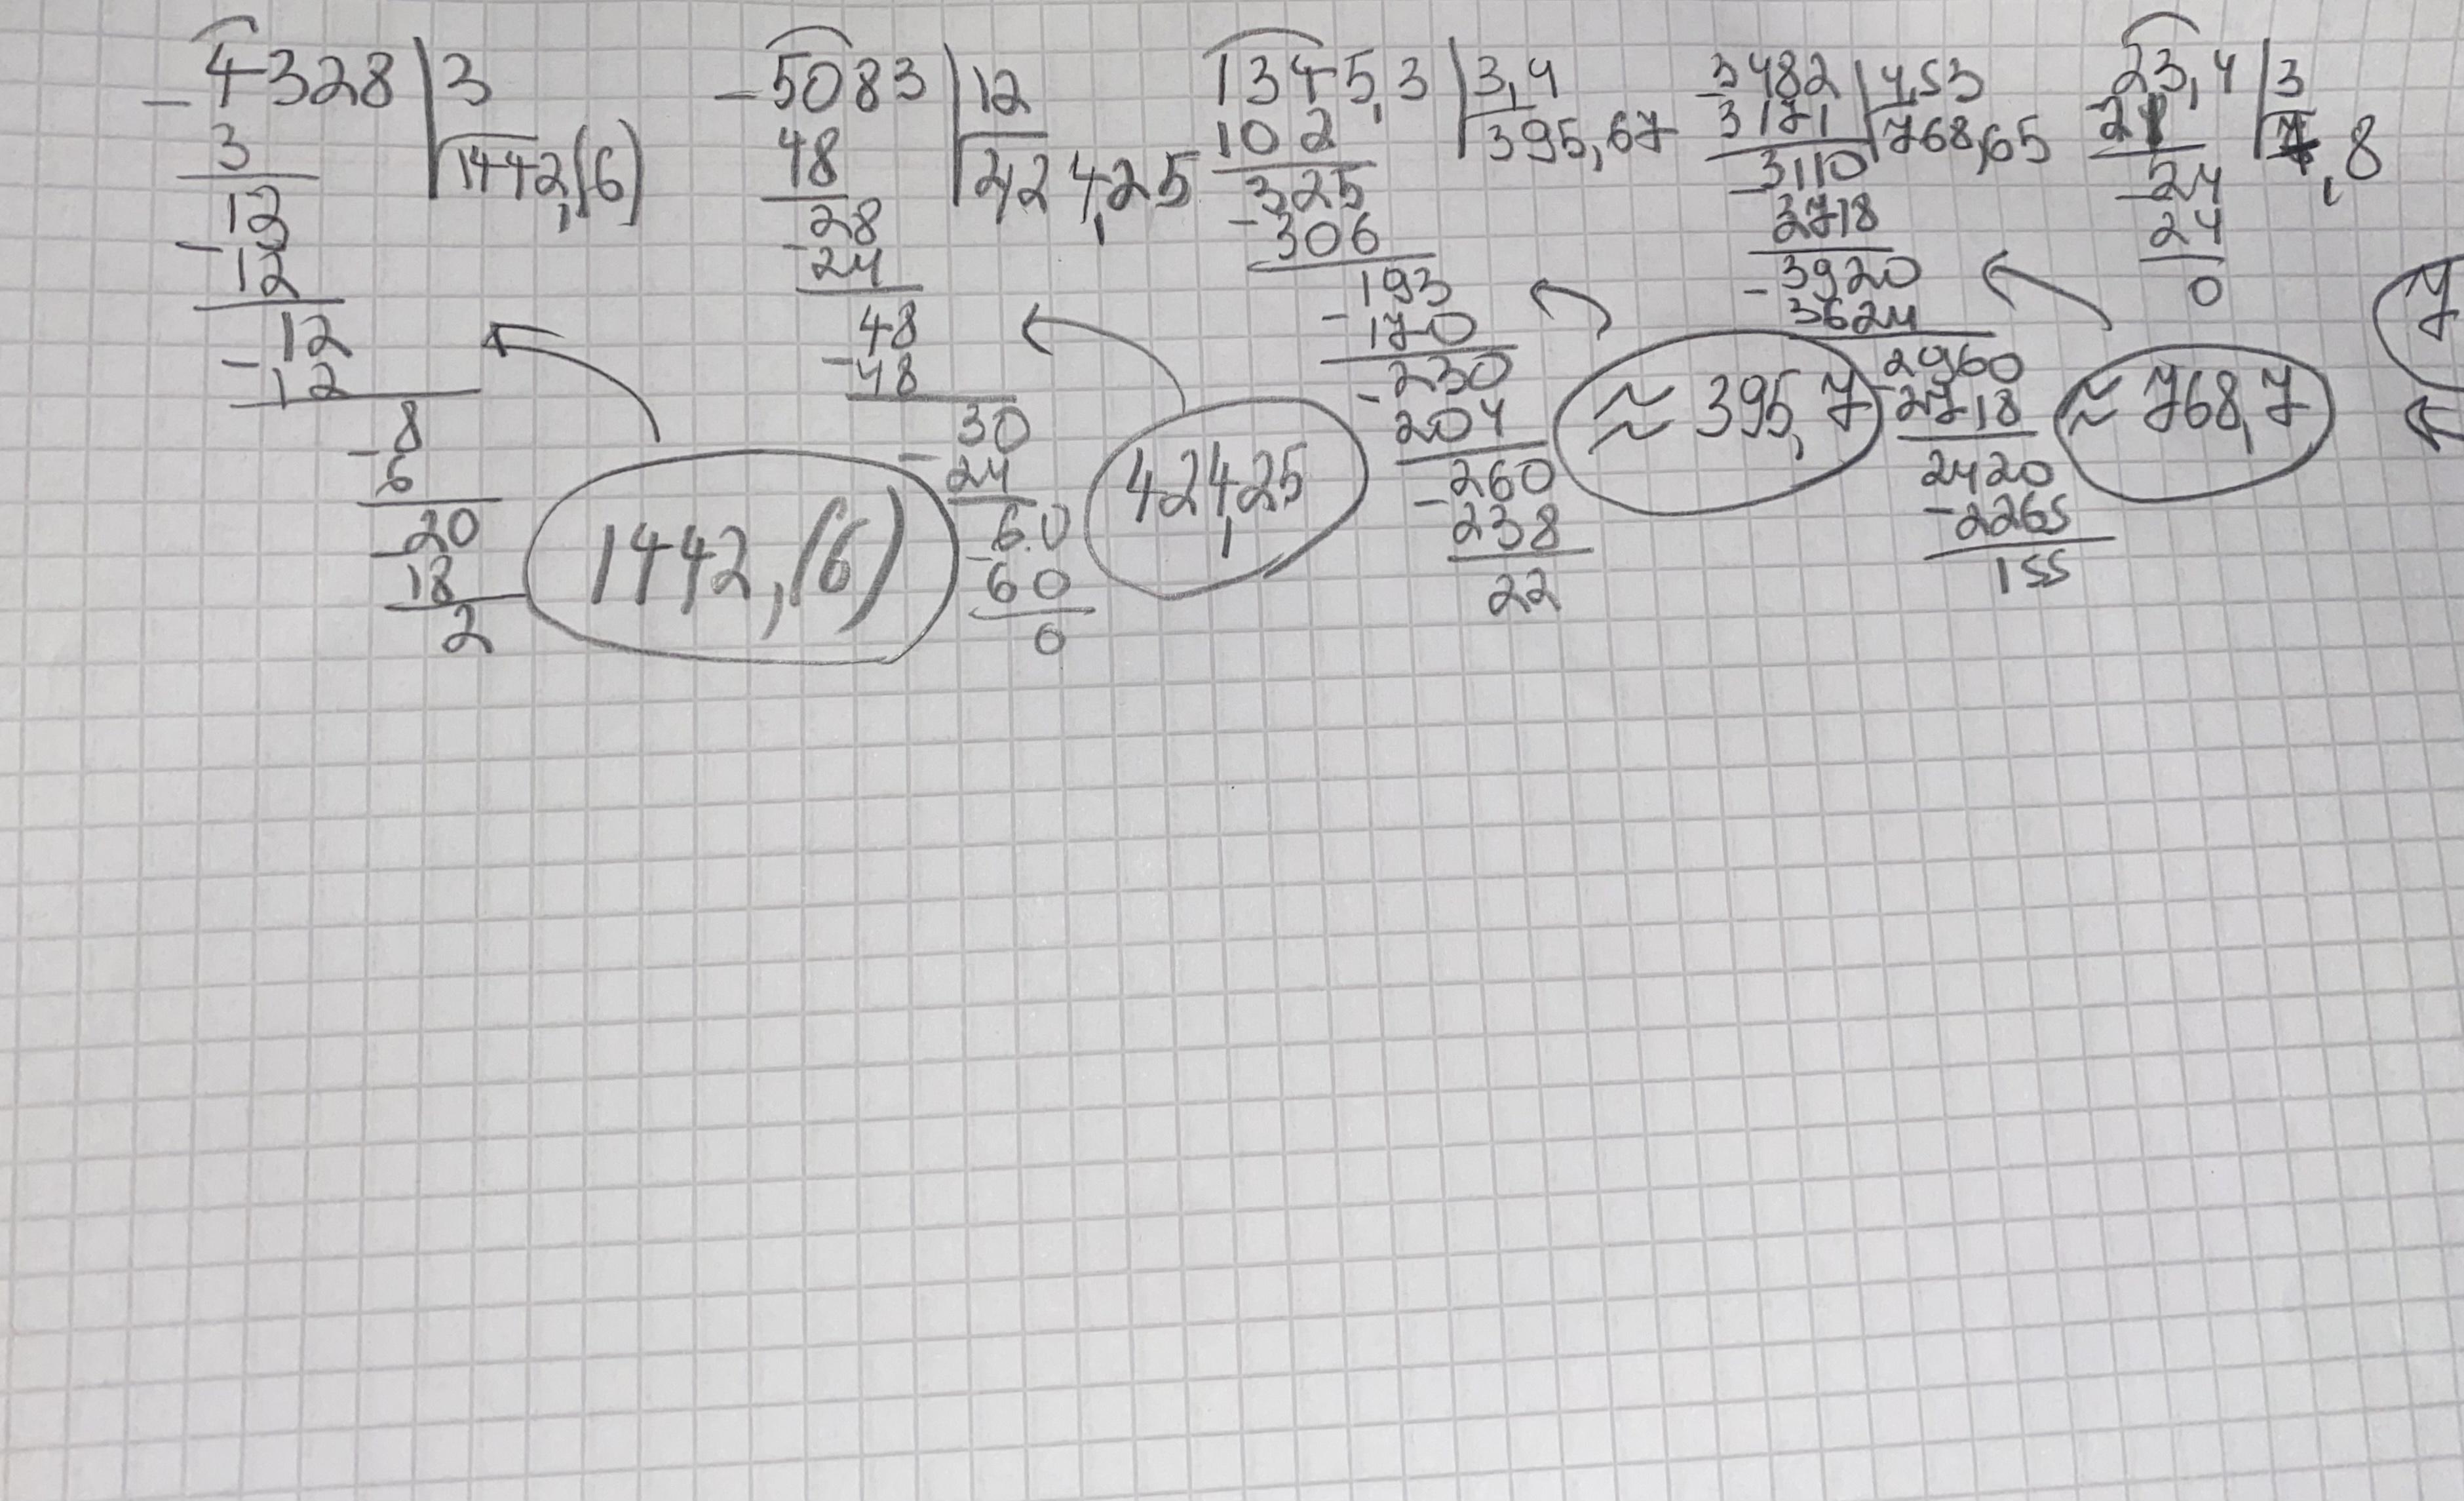 4328 | 3
3
1442,(6)
13
12
12
12
8
6
20
18
2
1442,(6)
5083 | 12
48
424,25
28
24
48
48
30
24
60
60
0
424,25
1345,3 | 3,4
102
395,67
325
306
193
170
230
204
260
238
22
≈ 395,7
3482 | 4,53
3171
768,65
3110
2718
3920
3624
2960
2718
2420
2265
155
≈ 768,7
23,4 | 3
21
7,8
24
24
0